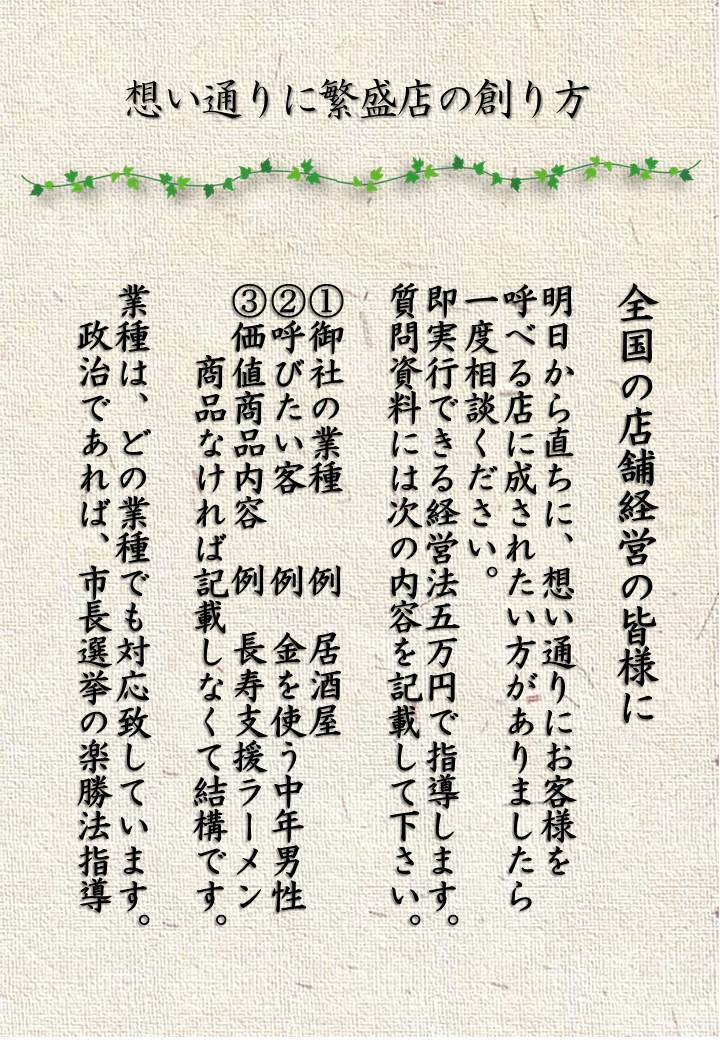 想い通りに繁盛店の創り方
全国の店舗経営の皆様に
明日から直ちに、想い通りにお客様を
呼べる店に成されたい方がありましたら
一度相談ください。
即実行できる経営法五万円で指導します。
質問資料には次の内容を記載して下さい。
①御社の業種　例　居酒屋
②呼びたい客　例　金を使う中年男性
③価値商品内容　例　長寿支援ラーメン
商品なければ記載しなくて結構です。
業種は、どの業種でも対応致しています。
政治であれば、市長選挙の楽勝法指導